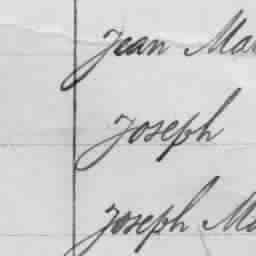 Jean Ma
Joseph
Joseph Ma